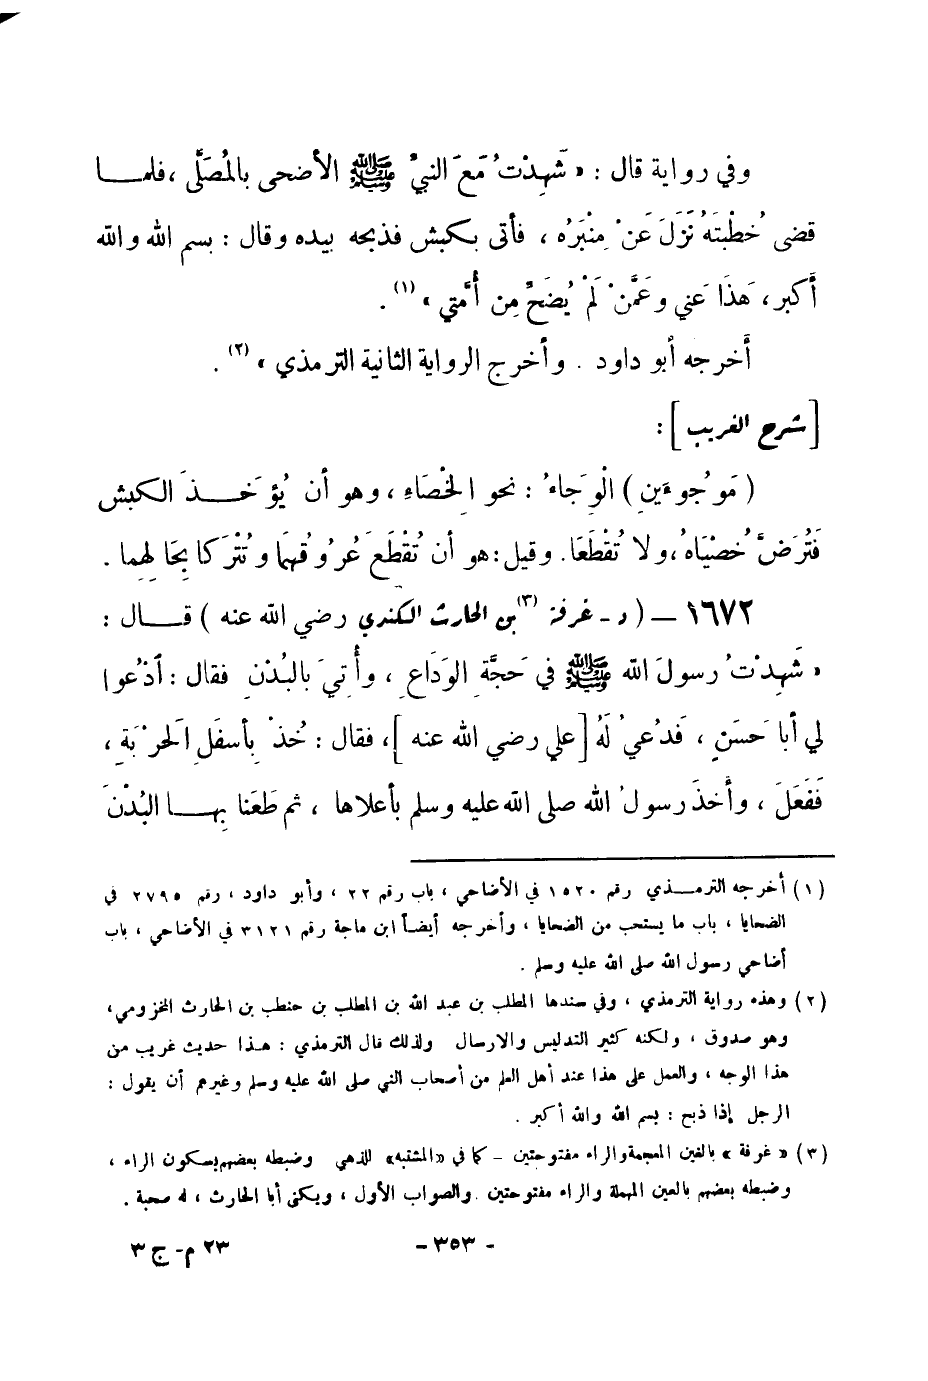 وفي رواية قال : « شَهِدْتُ مَعَ النبيِّ ﷺ الأضحى بالمُصَلَّى ، فلمــا
قضى خُطْبتَهُ نَزَلَ عَنْ مِنْبَرُه ، فأتى بكبش فذبحه بيده وقال : بسم الله والله
أكبر ، هَذَا عَني وعَمَّنْ لَمْ يُضَحِّ مِن أُمَّتي » (١) .
أخرجه أبو داود . وأخرج الرواية الثانية الترمذي » (٢) .
[ شرح الغريب ] :
( مَوْجُوءَينِ ) الْوِجَاءُ : نحو الِخْصَاءِ ، وهو أن يُؤخَــذَ الكبش
فَتُرَضَّ خُصْيَاهُ ، ولا تُقْطَعَا . وقيل : هو أن تُقْطَعَ عُرُوقُهمَا وتُتْرَكا بِحَالِهِما .
١٦٧٢ ــ ( د - غرفة (٣) بن الحارث الكندي رضي الله عنه ) قــال :
« شَهِدْتُ رسولَ الله ﷺ في حَجَّةِ الوَدَاعِ ، وأُتِيَ بالبُدْنِ فقال : ادْعُوا
لي أبا حَسَنٍ ، فَدُعيُ لَهُ [ علي رضي الله عنه ] ، فقال : خُذْ بِأسفَلِ الَحرْبَةِ ،
فَفَعَلَ ، وأَخذَ رسولُ الله صلى الله عليه وسلم بأعلاها ، ثم طَعَنا بِهــا البُدْنَ
(١) أخرجه الترمــذي رقم ١٥٢٠ في الأضاحي ، باب رقم ٢٢ ، وأبو داود ، رقم ٢٧٩٥ في
الضحايا ، باب ما يستحب من الضحايا ، وأخرجه أيضاً ابن ماجة رقم ٣١٢١ في الأضاحي ، باب
أضاحي رسول الله صلى الله عليه وسلم .
(٢) وهذه رواية الترمذي ، وفي سندها المطلب بن عبد الله بن المطلب بن حنطب بن الحارث المخزومي ،
وهو صدوق ، ولكنه كثير التدليس والارسال ولذلك قال الترمذي : هــذا حديث غريب من
هذا الوجه ، والعمل على هذا عند أهل العلم من أصحاب النبي صلى الله عليه وسلم وغيرهم أن يقول :
الرجل إذا ذبح : بسم الله والله أكبر .
(٣) « غرفة » بالغين المعجمة والراء مفتوحتين - كما في «المشتبه» للذهبي وضبطه بعضهم بسكون الراء ،
وضبطه بعضهم بالعين المهملة والراء مفتوحتين . والصواب الأول ، ويكنى أبا الحارث ، له صحبة .
- ٣٥٣ -
٢٣ م- ج ٣